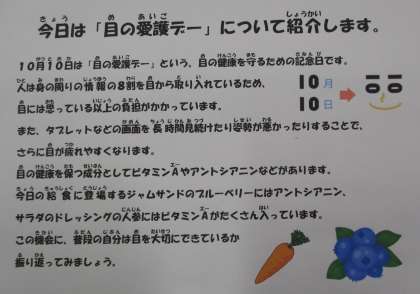 今日は「目の愛護デー」について紹介します。
10月10日は「目の愛護デー」という、目の健康を守るための記念日です。
人は身の周りの情報の8割を目から取り入れているため、
目には思っている以上の負担がかかっています。
10月
10日
また、タブレットなどの画面を長時間見続けたり姿勢が悪かったりすることで、
さらに目が疲れやすくなります。
目の健康を保つ成分としてビタミンAやアントシアニンなどがあります。
今日の給食に登場するジャムサンドのブルーベリーにはアントシアニン、
サラダのドレッシングの人参にはビタミンAがたくさん入っています。
この機会に、普段の自分は目を大切にできているか
振り返ってみましょう。